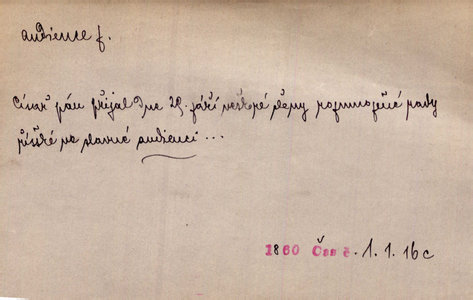 audience f.
Císař pán přijal dne 29. září veškeré členy rozmnožené rady
říšské ve slavné audienci ...
1860 Čas č. 1. 1. 16c